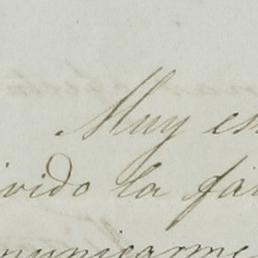 Muy es
ivido la fa
municarme